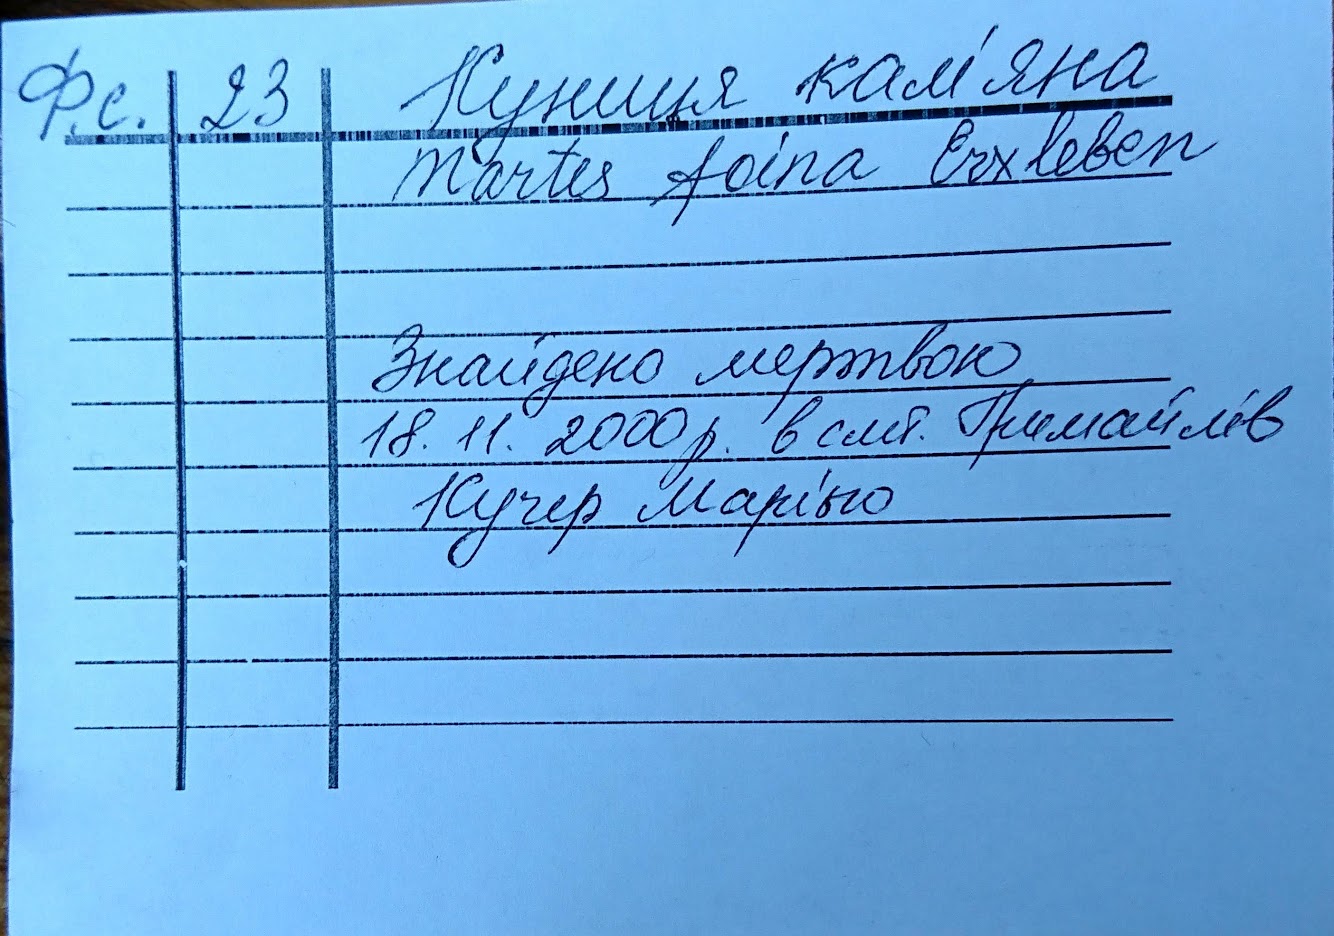 Ф.с. 23 Куниця кам'яна
Martes foina Erxleben
Знайдено мертвою
18.11.2000р. в смт. Гримайлів
Кучер Марією